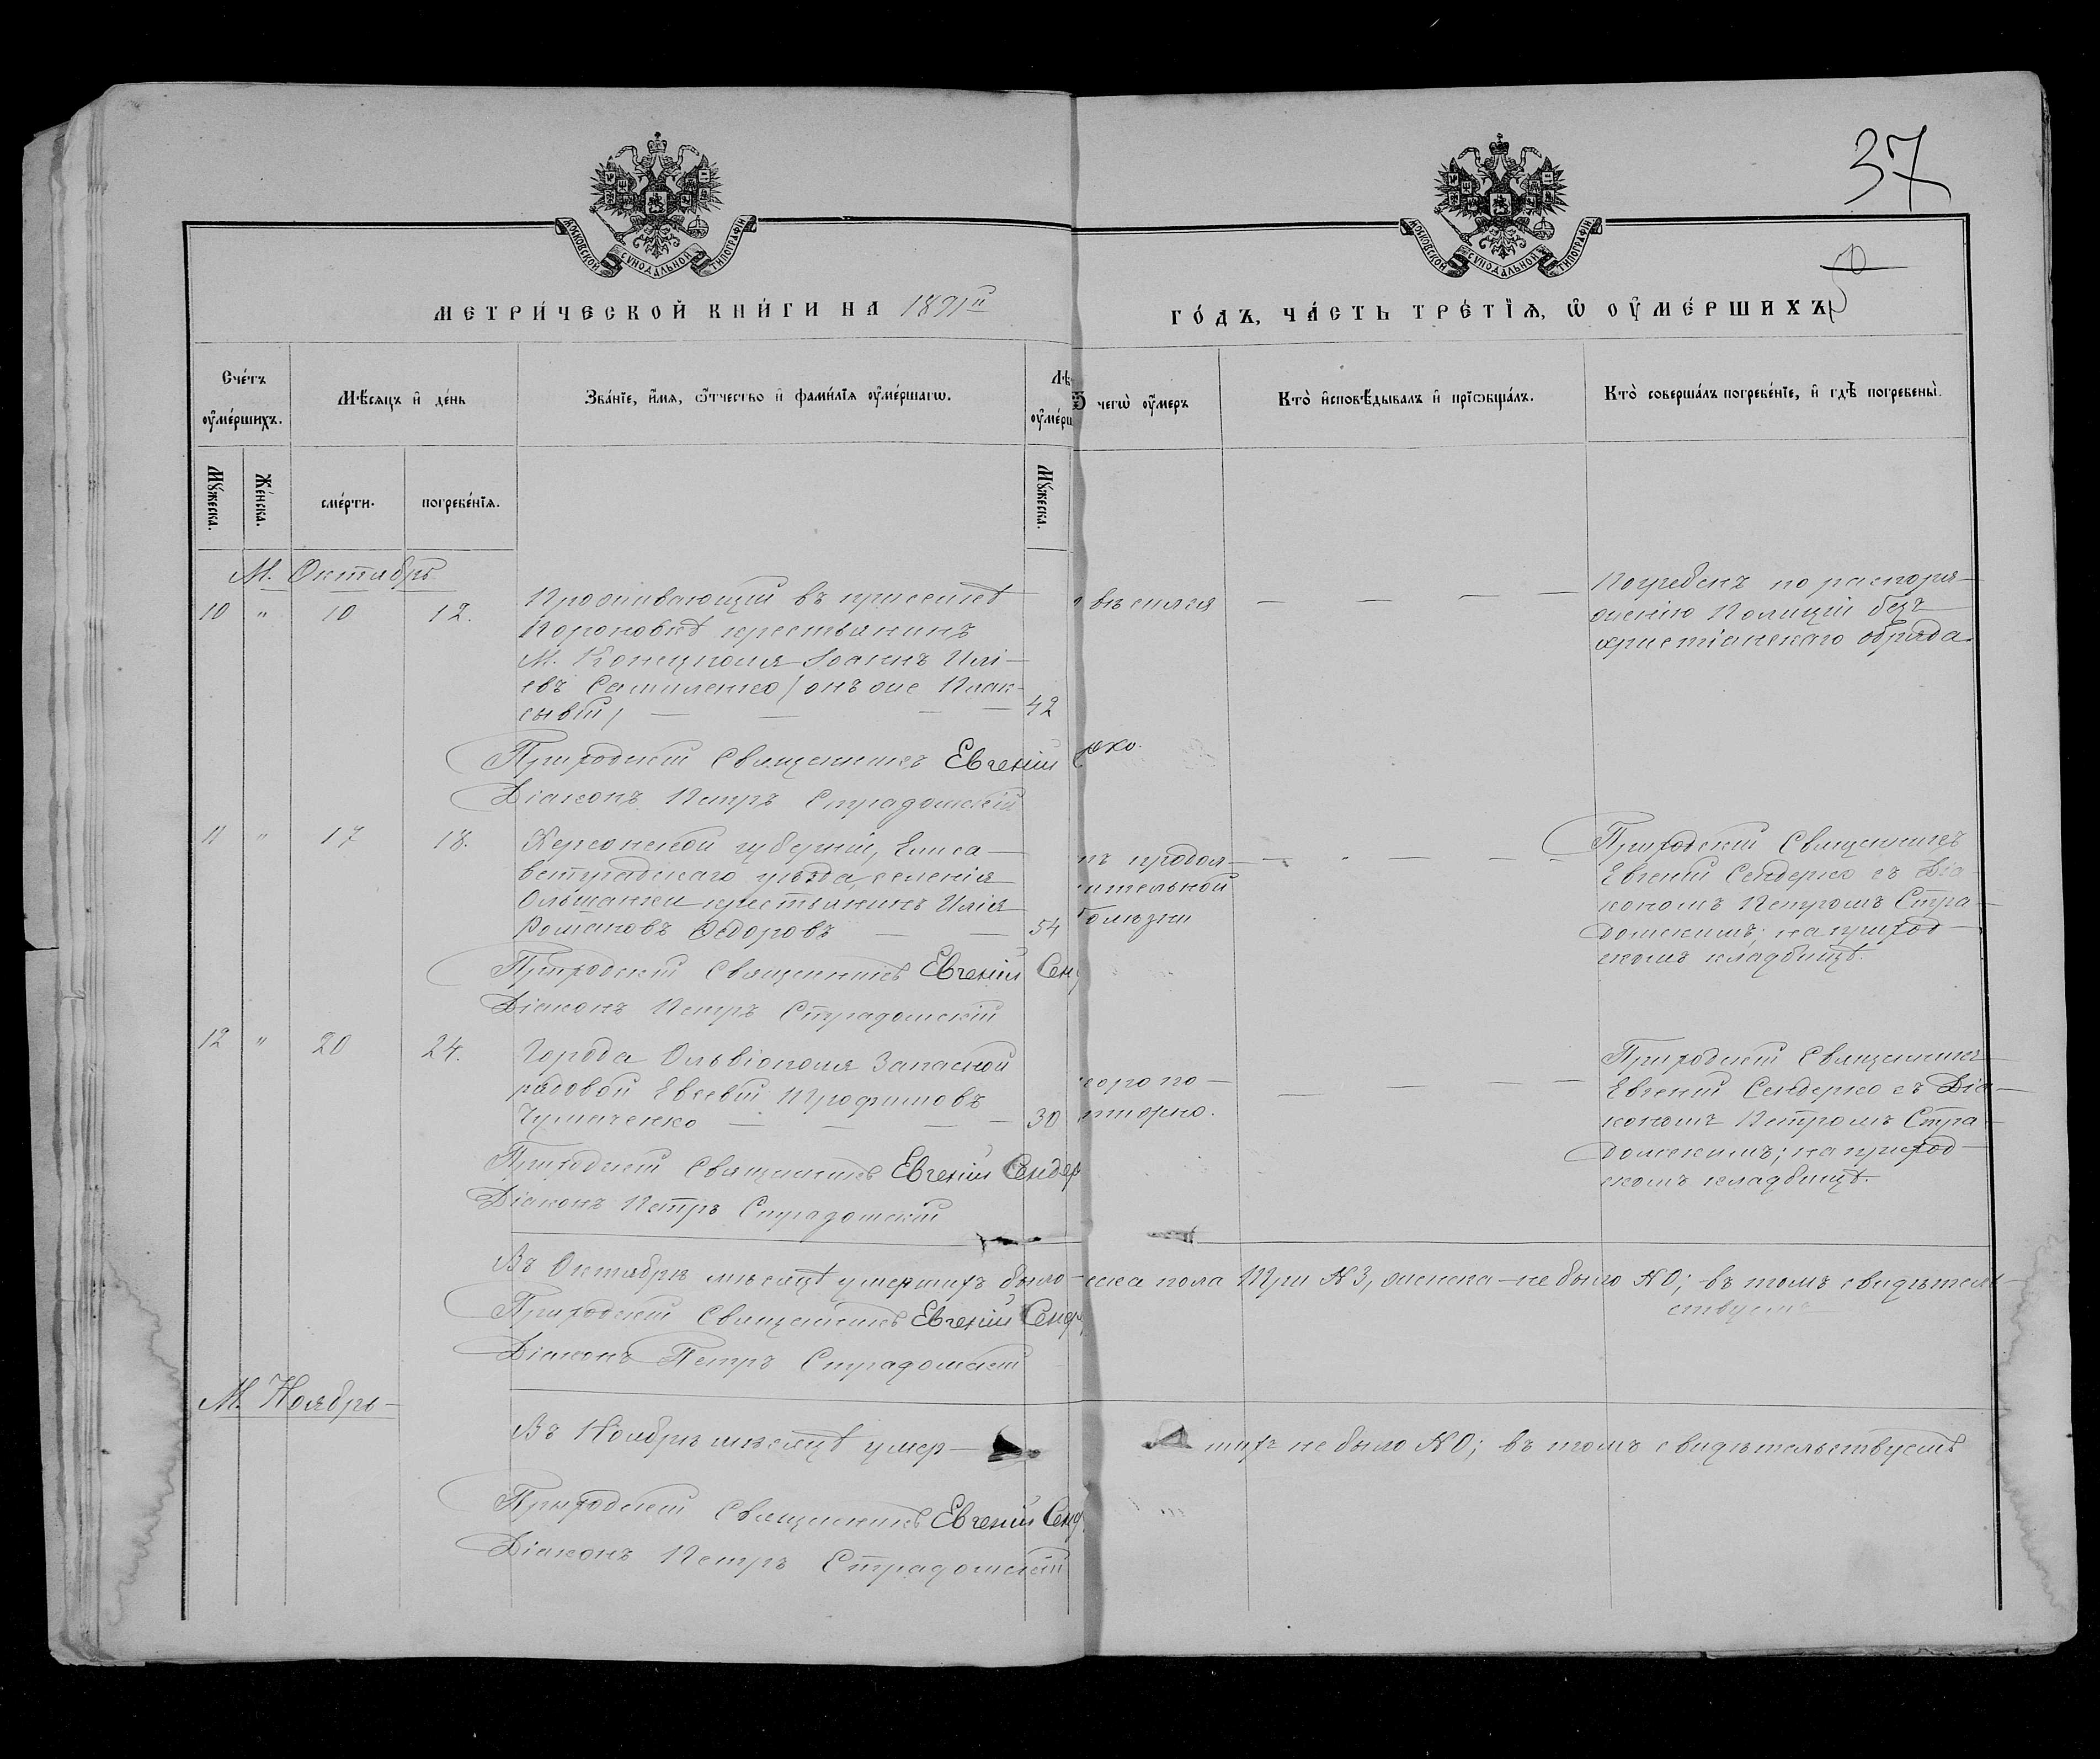 37
МОСКОВСКОЙ СѴНОДАЛЬНОЙ ТИПОГРАФІИ
МОСКОВСКОЙ СѴНОДАЛЬНОЙ ТИПОГРАФІИ
МЕТРИ́ЧЕСКОЙ КНИ́ГИ НА 1891й
ГО́ДЪ, ЧА́СТЬ ТРЕ́ТЇѦ, Ѿ ОУ҆МЕ́РШИХЪ
Сче́тъ оу҆ме́ршихъ.
Мѣ́сяцъ и҆ де́нь
Зва́нїе, и҆́мя, ѻ҆́тчество и҆ фами́лїя оу҆ме́ршагѡ.
Лѣ
оу҆ме́рш
Ѿ чегѡ̀ оу҆́меръ
Кто̀ и҆сповѣ́дывалъ и҆ прїѡбща́лъ.
Кто̀ соверша́лъ погребе́нїе, и҆ гдѣ̀ погребены̀.
Мꙋ́жеска.
Же́нска.
сме́рти.
погребе́нїѧ.
Мꙋ́жеска.
М. Октябрь
10 " 10 12.
Проживающій въ присѣлкѣ
крестьянинъ
М. Конецполя Іоаннъ Илі-
евъ Самиленко / онъ же Плак-
сывый / — — — — 42
овѣсился — — — —
Погребенъ по распоря-
женію Полиціи безъ
христіанскаго обряда.
Приходскій Священникъ Евгеній рко.
Діаконъ Петръ Страдомскій
11 " 17 18.
Херсонской губерніи, Елиса-
ветградскаго уѣзда, селенія
Ольшанки крестьянинъ Илія
Романовъ Ѳедоровъ — — 54
тъ продол-
жительной
болѣзни
Приходскій Священникъ
Евгеній Сендерко съ Діа-
кономъ Петромъ Стра-
домскимъ; на приход-
скомъ кладбищѣ.
Приходскій Священникъ Евгеній Сен
Діаконъ Петръ Страдомскій
12 " 20 24.
Города Ольвіополя Запасной
рядовой Евсевій Трофимовъ
Чумаченко — — — — 30
коропо-
стижно.
Приходскій Священникъ
Евгеній Сендерко съ Діа-
кономъ Петромъ Стра-
домскимъ; на приход-
скомъ кладбищѣ.
Приходскій Священникъ Евгеній Сендер
Діаконъ Петръ Страдомскій
Въ Октябрѣ мѣсяцѣ умершихъ было-жеска пола Три № 3, женска-не было № 0; въ томъ свидѣтель-
ствуемъ
Приходскій Священникъ Евгеній Сенд
Діаконъ Петръ Страдомскій
М. Ноябрь-
Въ Ноябрѣ мѣсяцѣ умер- шихъ не было № 0; въ томъ свидѣтельствуемъ
Приходскій Священникъ Евгеній Сенд
Діаконъ Петръ Страдомскій